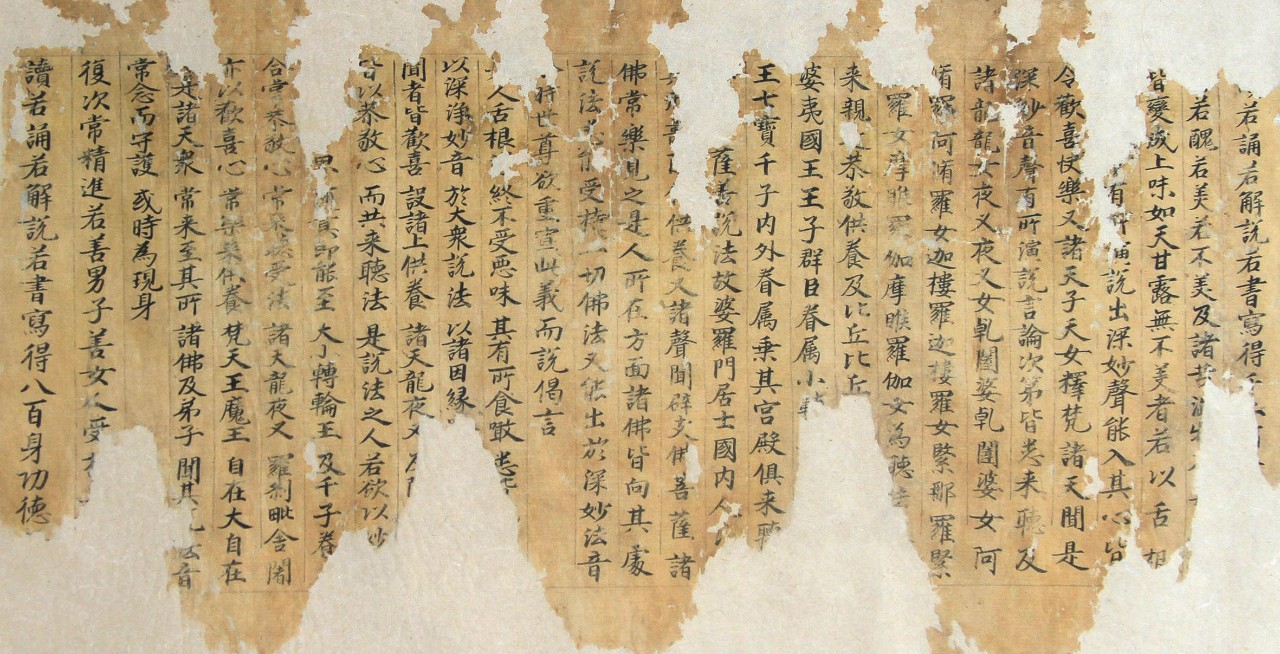 若誦若解說若書寫得
若醜若美若不美及諸苦澁物
皆變成上味如天甘露無不美者若以舌根
有所演說出深妙聲能入其心皆
令歡喜快樂又諸天子天女釋梵諸天聞是
深妙音聲有所演說言論次第皆悉来聽及
諸龍龍女夜叉夜叉女乹闥婆乹闥婆女阿
脩羅阿脩羅女迦樓羅迦樓羅女緊那羅緊
羅女摩睺羅伽摩睺羅伽女為聽法
来親恭敬供養及比丘比丘
婆夷國王王子群臣眷属小轉
王七寶千子内外眷属乗其宫殿俱来聽
薩善說法故婆羅門居士國内人
供養又諸聲聞辟支佛菩薩諸
佛常樂見之是人所在方面諸佛皆向其處
說法悉能受持一切佛法又能出於深妙法音
尒時世尊欲重宣此義而說偈言
人舌根 終不受惡味 其有所食噉 悉
以深淨妙音 於大衆說法 以諸因緣
聞者皆歡喜 設諸上供養 諸天龍夜叉 及阿
皆以恭敬心 而共来聽法 是說法之人 若欲以妙
即能至 大小轉輪王 及千子眷
合掌恭敬心 常来聽受法 諸天龍夜叉 羅刹毗舍闍
亦以歡喜心 常樂来供養 梵天王魔王 自在大自在
是諸天衆 常来至其所 諸佛及弟子 聞其說法音
常念而守護 或時為現身
復次常精進若善男子善女人受持
讀若誦若解說若書寫得八百身功德